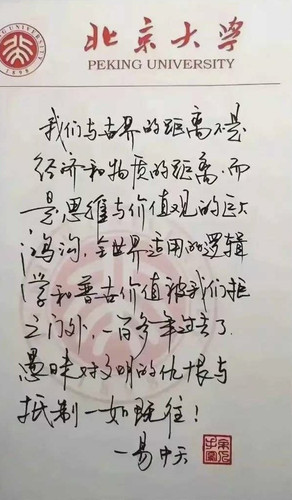 北京大学
PEKING UNIVERSITY
1898
我们与世界的距离不是
经济和物质的距离,而
是思维与价值观的巨大
鸿沟,全世界适用的逻辑
学和普世价值被我们拒
之门外,一百多年过去了,
愚昧对文明的仇恨与
抵制一如既往!
—易中天